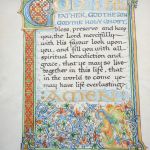 GOD THE
FATHER, GOD THE SON
GOD THE HOLY GHOST,
bless, preserve and keep
you, the Lord mercifully
with His favour look upon
you: and fill you with all
spiritual benediction and
grace; that ye may so live
together in this life, that
in the world to come ye
may have life everlasting.
AMEN